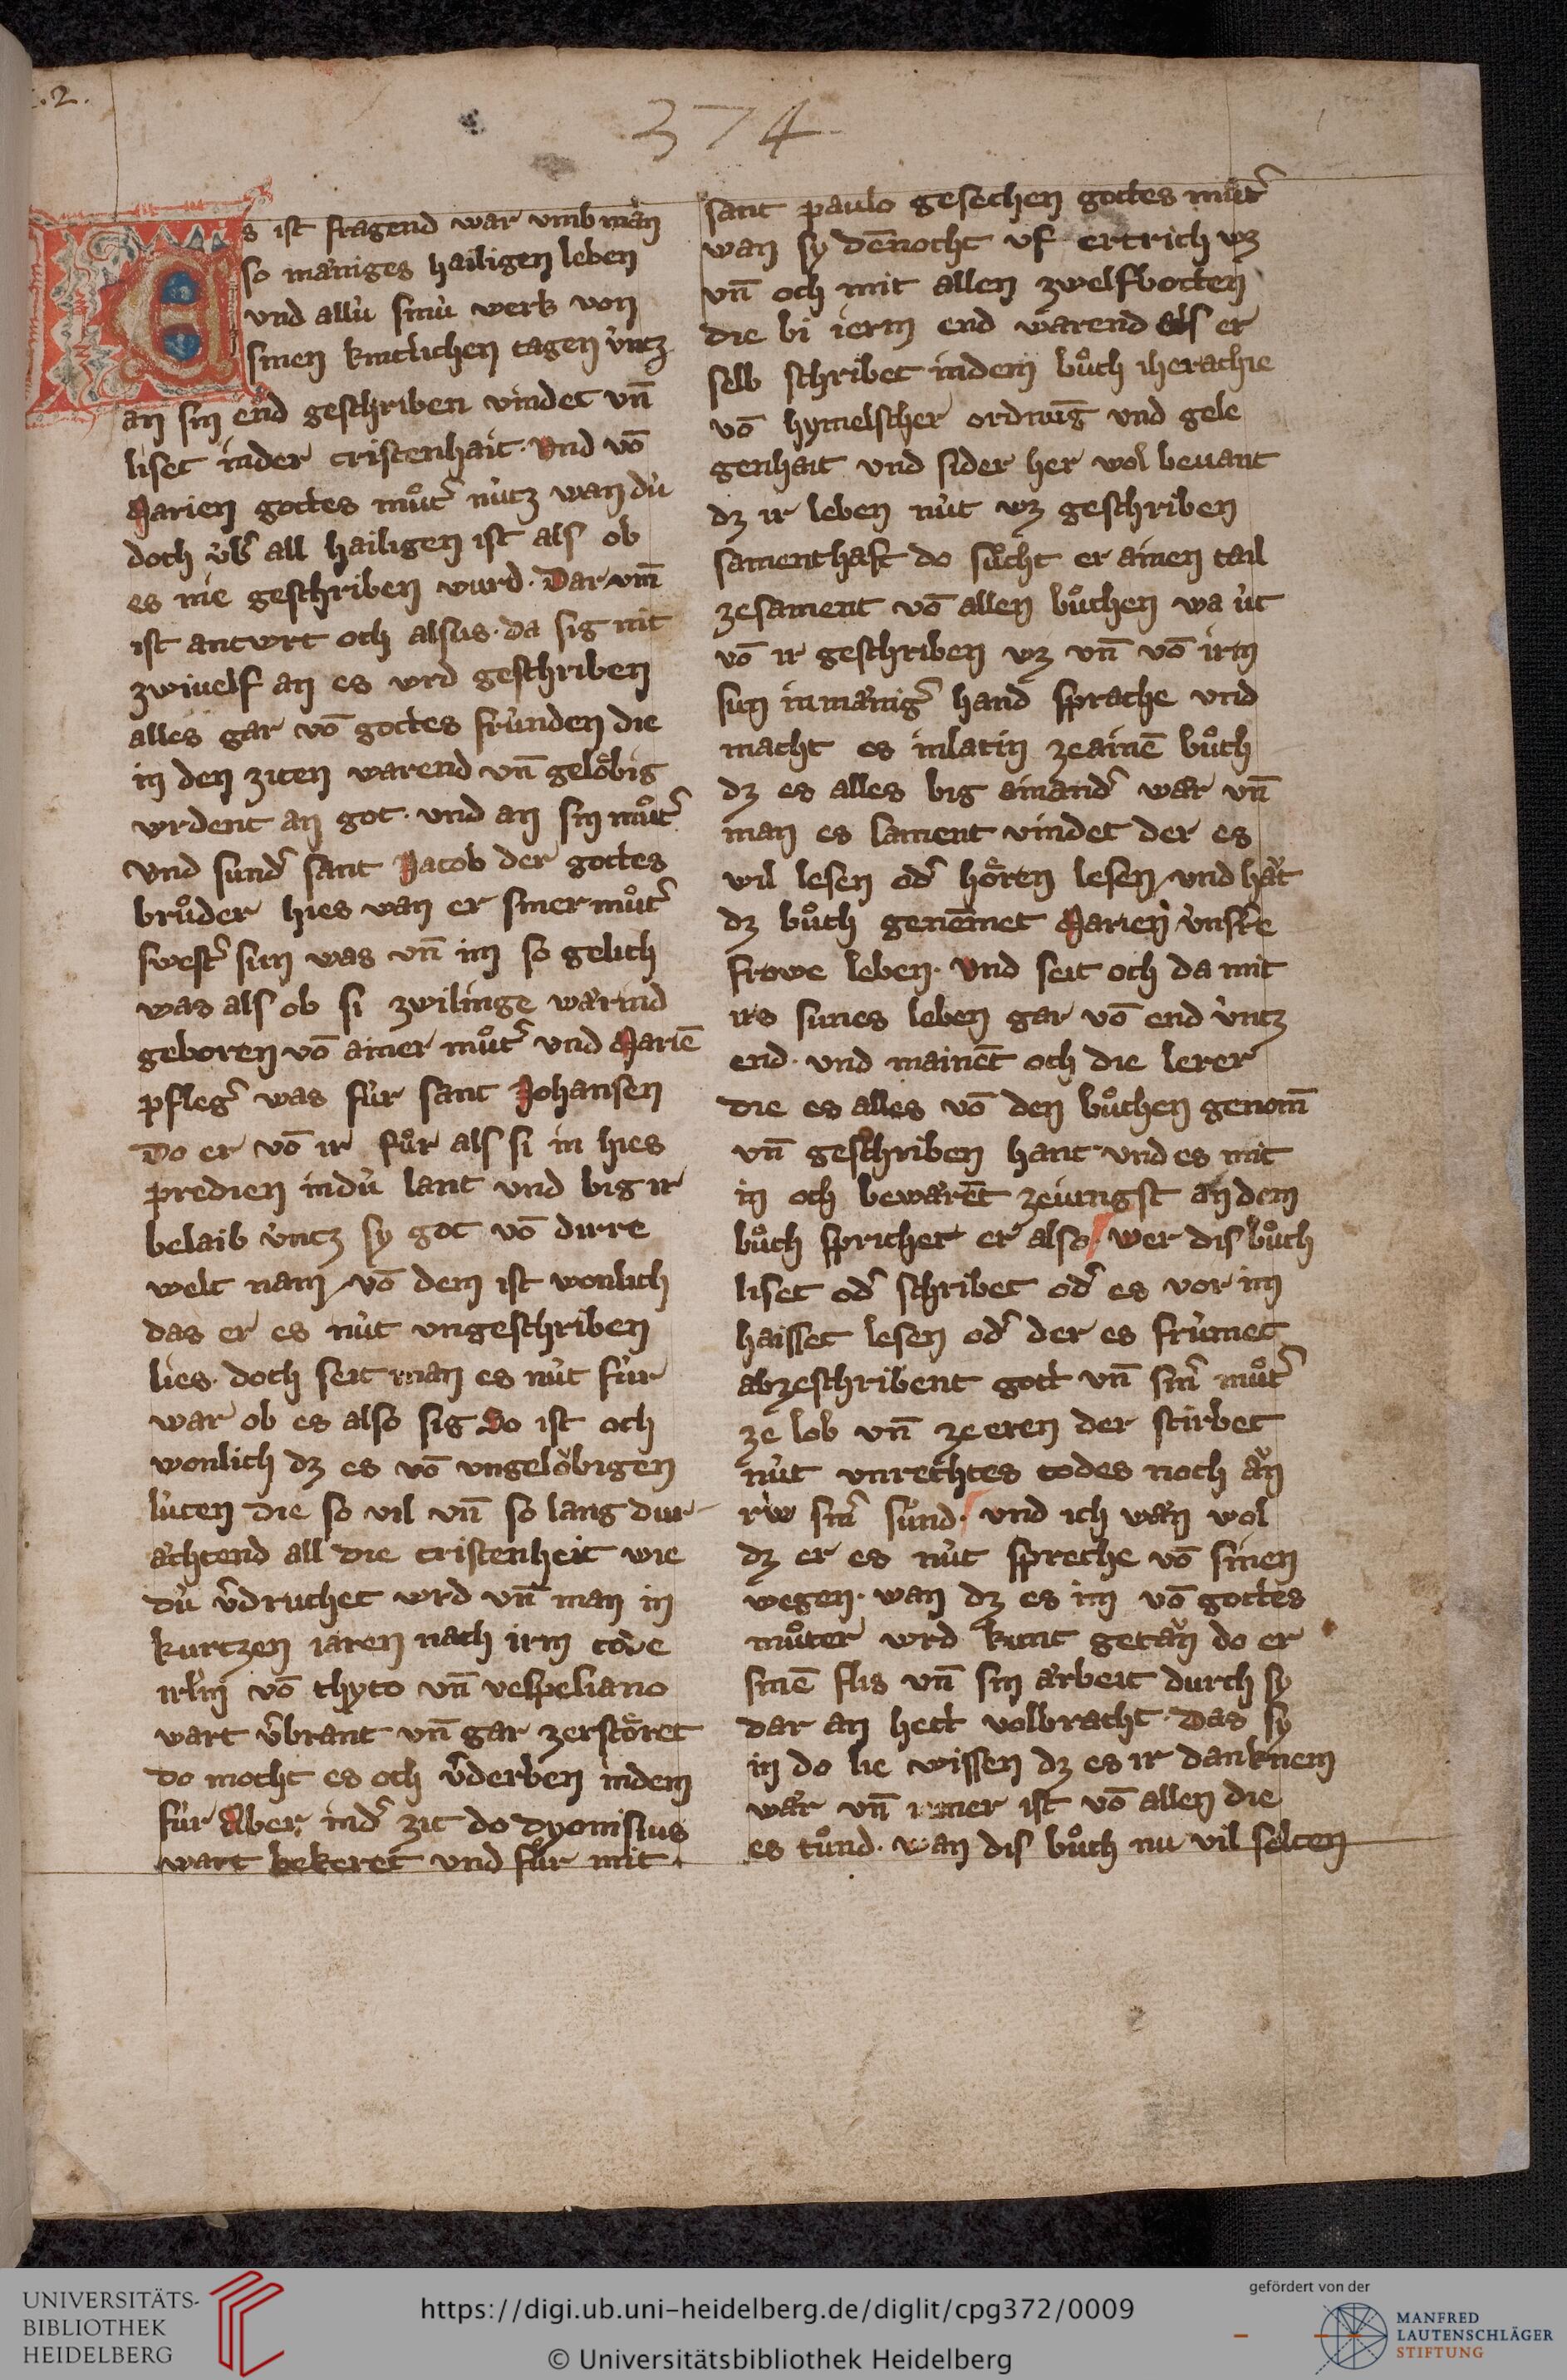 .2.
374
Es ist fragend war vmb man
so ma̍niges hailigen leben
vnd allu̍ sinu̍ werk von
sinen kintlichen tagen v̍ntz
an sin end geschriben vindet vn̄
liset inder cristenhait · vnd vō
Marien gottes můt͛ nu̍tz wan du̍
doch v̍b͛ all hailigen ist als ob
es nie geschriben wurd · Dar vm̄
ist antwrt och alsus · da sig nit
zwiuelf an es wrd geschriben
alles gar vō gottes fru̍nden die
in den ziten warend vn̄ gelo̍big
wrdent an got · vnd an sin můt͛
vnd sund͛ sant Jacob der gottes
bru̍der hies wan er siner můt͛
swest͛ sun was vn̄ im so gelich
was als ob si zwilinge wa̍rind
geboren vō ainer můt͛ vnd Mariē
pfleg͛ was fu̍r sant Johansen
Do er vō ir fůr als si in hies
predien indu̍ lant vnd big ir
belaib v̍ntz sy got vō dirre
welt nam / vō dem ist wonlich
das er es nu̍t vngeschriben
lies · doch seit man es nu̍t fu̍r
war ob es also sig So ist och
wonlich dz es vō vngelo̍bigen
lu̍ten die so vil vn̄ so lang dur
a̍chtend all die cristenheit wie
du̍ v͛druchet wrd vn̄ man in
kurtzen iaren nach irm tode
irl̄m vō thyto vn̄ vespesiano
wart v͛brant vn̄ gar zersto̍ret
do mocht es och v͛derben indem
fu̍r Aber ind͛ zit do dyonisius
wart bekeret vnd fůr mit
sant paulo gesechen gottes můt͛
wan sy dēnocht vf ertrich wz
vn̄ och mit allen zwelfbotten
die bi ierm end warend als er
selb schribet indem bůch iherachie
vō hymelscher ordnūg vnd gele
genhait vnd sider her wol bevant
dz ir leben nu̍t wz geschriben
samenthaft do sůcht er ainen tail
zesament vō allen bůchen wa u̍t
vō ir geschriben wz vn̄ vō irm
sun in ma̍nig͛ hand sprache vnd
macht es inlatin zeainē bůch
dz es alles big ainand͛ war vn̄
man es sament vindet der es
wil lesen od͛ ho̍ren lesen / vnd ha̍t
dz bůch genēmet Marien v̍ns͛re
frowe leben · vnd seit och da mit
irs sunes leben gar vō end v̍ntz
end · vnd mainēt och die lerer
die es alles vō den bůchen genom̄
vn̄ geschriben hant vnd es mit
in och bewa̍rēt zeiungst an dem
bůch spricher er also wer dis bůch
liset od͛ schribet od͛ es vor im
haisset lesen od͛ der es fru̍met
abzeschribent gott vn̄ sin͛ můt͛
ze lob vn̄ ze eren der stirbet
nu̍t vnrechtes todes noch a̍n
ru̍w sin͛ su̍nd · vnd ich wa̍n wol
dz er es nu̍t spreche vō sinen
wegen · wan dz es im vō gottes
můter wrd kunt geta̍n do er
sinē flis vn̄ sin arbeit durch sy
dar an hett volbracht · Das sy
in do lie wissen dz es ir danknem
wa̍r vn̄ iemer ist vō allen die
es tůnd · wan dis bůch nu vil selten
UNIVERSITÄTS-
BIBLIOTHEK
HEIDELBERG
https://digi.ub.uni-heidelberg.de/diglit/cpg372/0009
© Universitätsbibliothek Heidelberg
gefördert von der
MANFRED
LAUTENSCHLÄGER
STIFTUNG